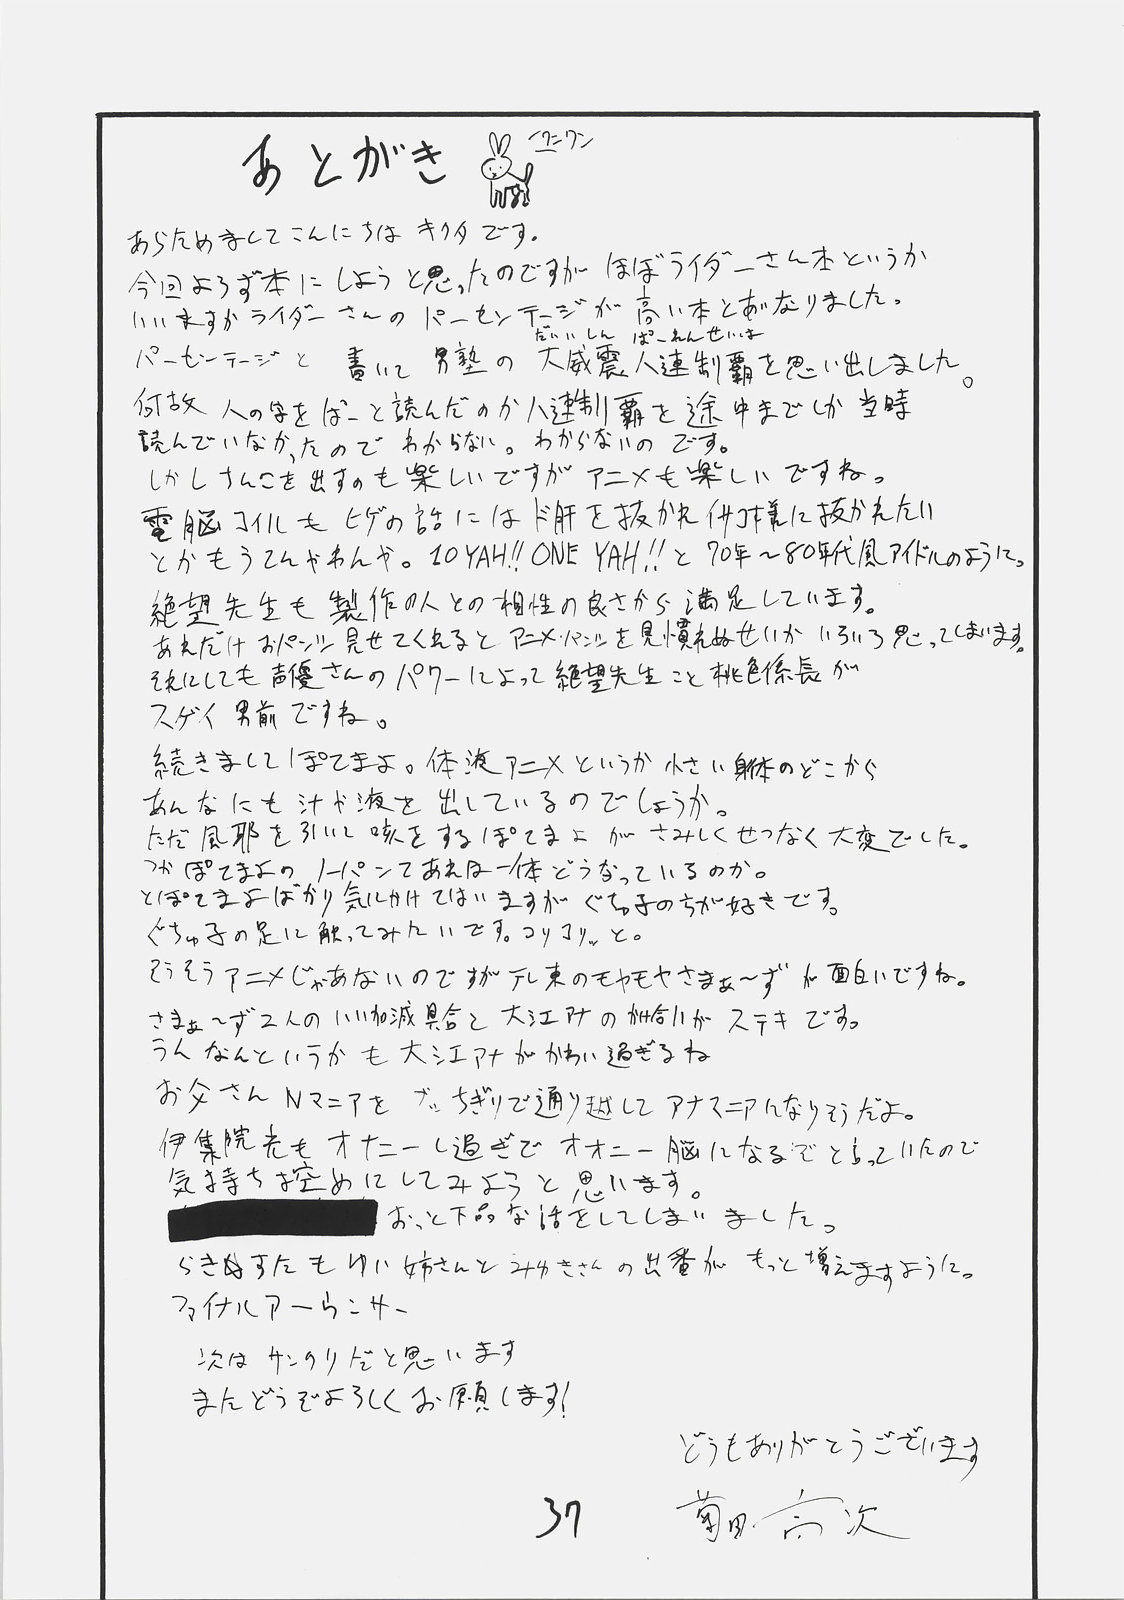 あとがき
ワンワン
あらためましてこんにちは キクタです。
今回よろず本にしようと思ったのですが ほぼライダーさん本というか
いいますかライダーさんの パーセンテージが 高い本とあいなりました。
だいいしん ぱーれんせいは
パーセンテージと 書いて 男塾の 大威震八連制覇を思い出しました。
何故 八の字をぱーと読んだのか八連制覇を途中までしか当時
読んでいなかったので わからない。わからないのです。
しかし さんこを出すのも楽しいですが アニメも楽しいですね。
電脳コイルも ヒゲの話にはド肝を抜かれ イサコ様に抜かれたい
とかもうてんやわんや。10YAH!! ONE YAH!! と 70年〜80年代風アイドルのように。
絶望先生も 製作の人との相性の良さから 満足しています。
あれだけおパンツ見せてくれるとアニメ・パンツを見慣れぬせいか いろいろ思ってしまいます。
それにしても 声優さんのパワーによって絶望先生こと桃色係長が
スゲイ 男前ですね。
続きまして ぽてまよ。体液アニメというか 小さい身体のどこから
あんなにも汁や液を出しているのでしょうか。
ただ 風邪を引いて咳をするぽてまよ が さみしくせつなく大変でした。
つか ぽてまよの ノーパンてあれは一体どうなっているのか。
とぽてまよばかり気にかけてはいますが ぐちゅ子のちが好きです。
ぐちゅ子の足に触ってみたいです。コリコリッと。
そうそうアニメじゃあないのですが テレ東のモヤモヤさまぁ〜ずが面白いですね。
さまぁ〜ず2人の いい加減具合と 大江アナの 絡合いが ステキです。
うん なんというかも 大江アナが かわい過ぎるね
お父さん Nマニアを ブッちぎりで通り越して アナマニアになりそうだよ。
伊集院光も オナニーし過ぎで オナニー脳になるぞと言っていたので
気持ち控めにしてみようと思います。
おっと下品な話をしてしまいました。
らき☆すたも ゆい姉さんと みゆきさんの出番が もっと増えますように。
ファイナルアーらンサー
次は サンクリだと思います
またどうぞよろしくお願いします!
どうもありがとうございます
菊田高次
37